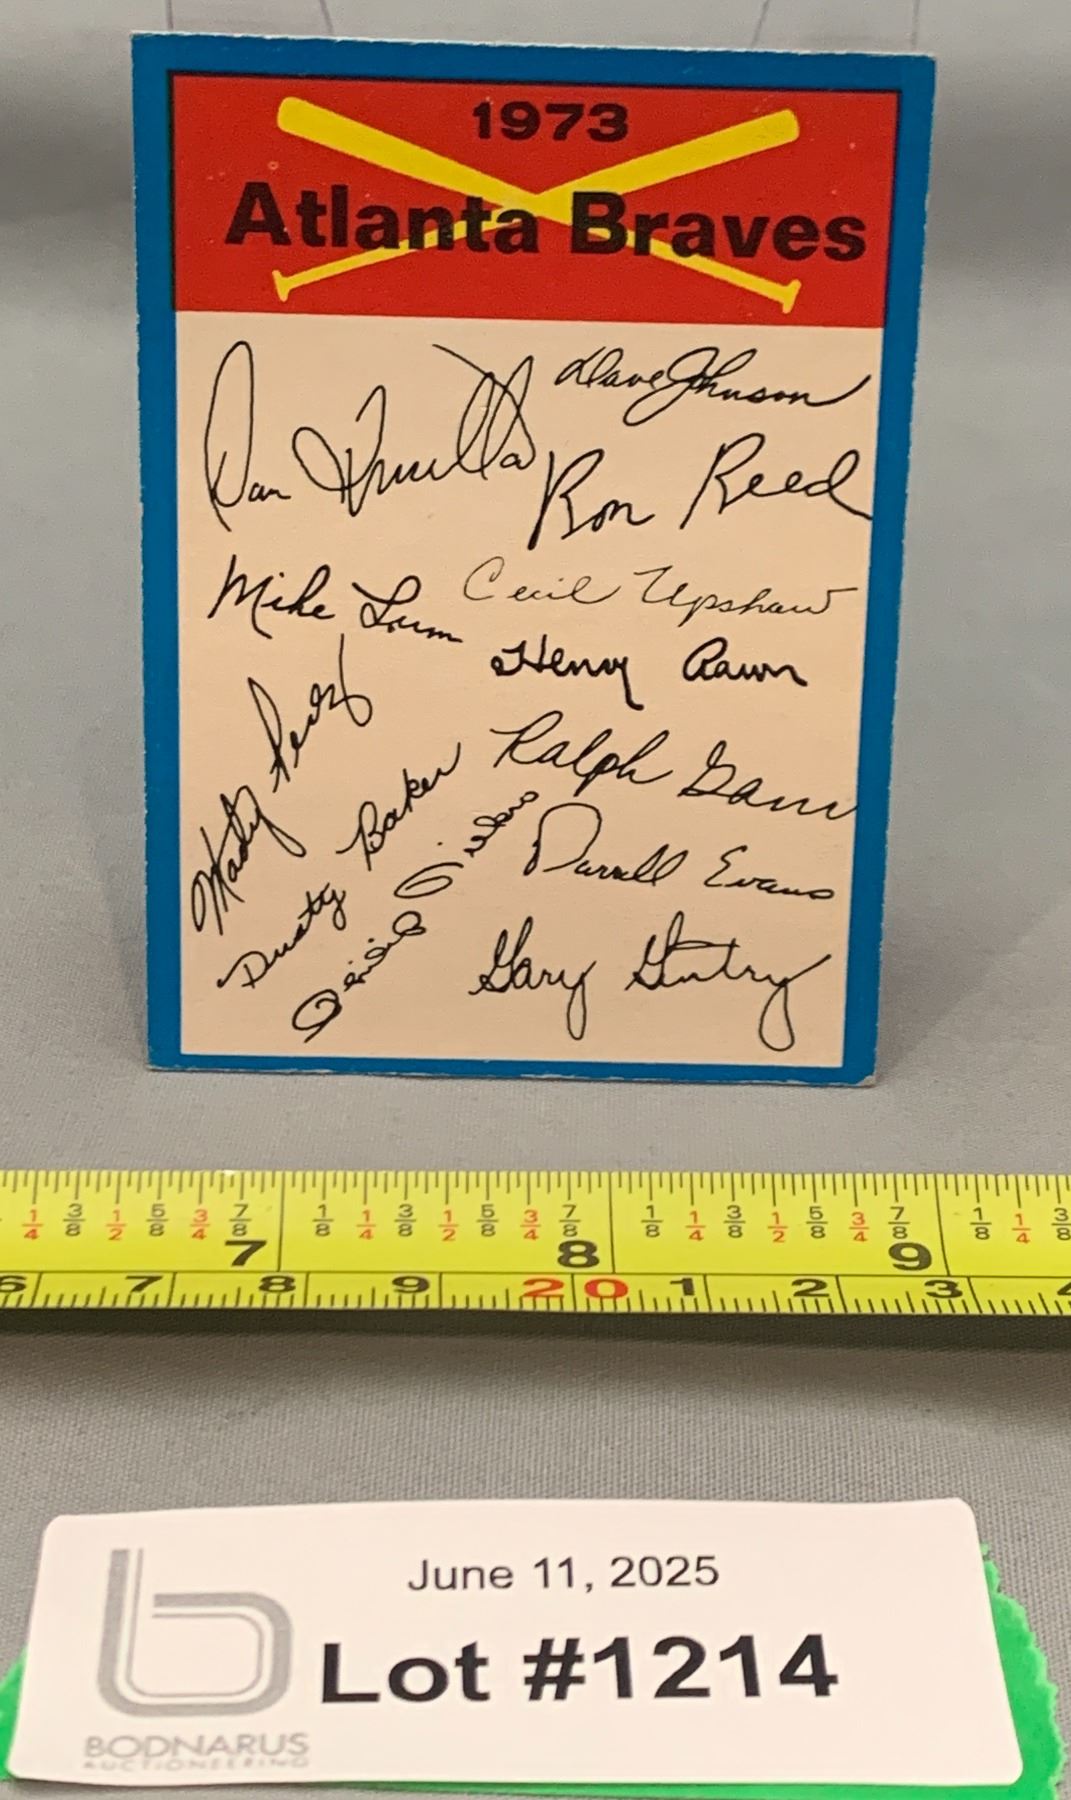 1973
Atlanta Braves
Dave Johnson
Dan Frisella
Ron Reed
Mike Lum
Cecil Upshaw
Henry Aaron
Marty Perez
Ralph Garr
Dusty Baker
Darrell Evans
Gary Gentry
1/4 3/8 1/2 5/8 3/4 7/8 1/8 1/4 3/8 1/2 5/8 3/4 7/8 1/8 1/4 3/8 1/2 5/8 3/4 7/8 1/8 1/4 3/8
7 8 9
6 7 8 9 20 1 2 3 4
June 11, 2025
Lot #1214
b
BODNARUS
AUCTIONEERING